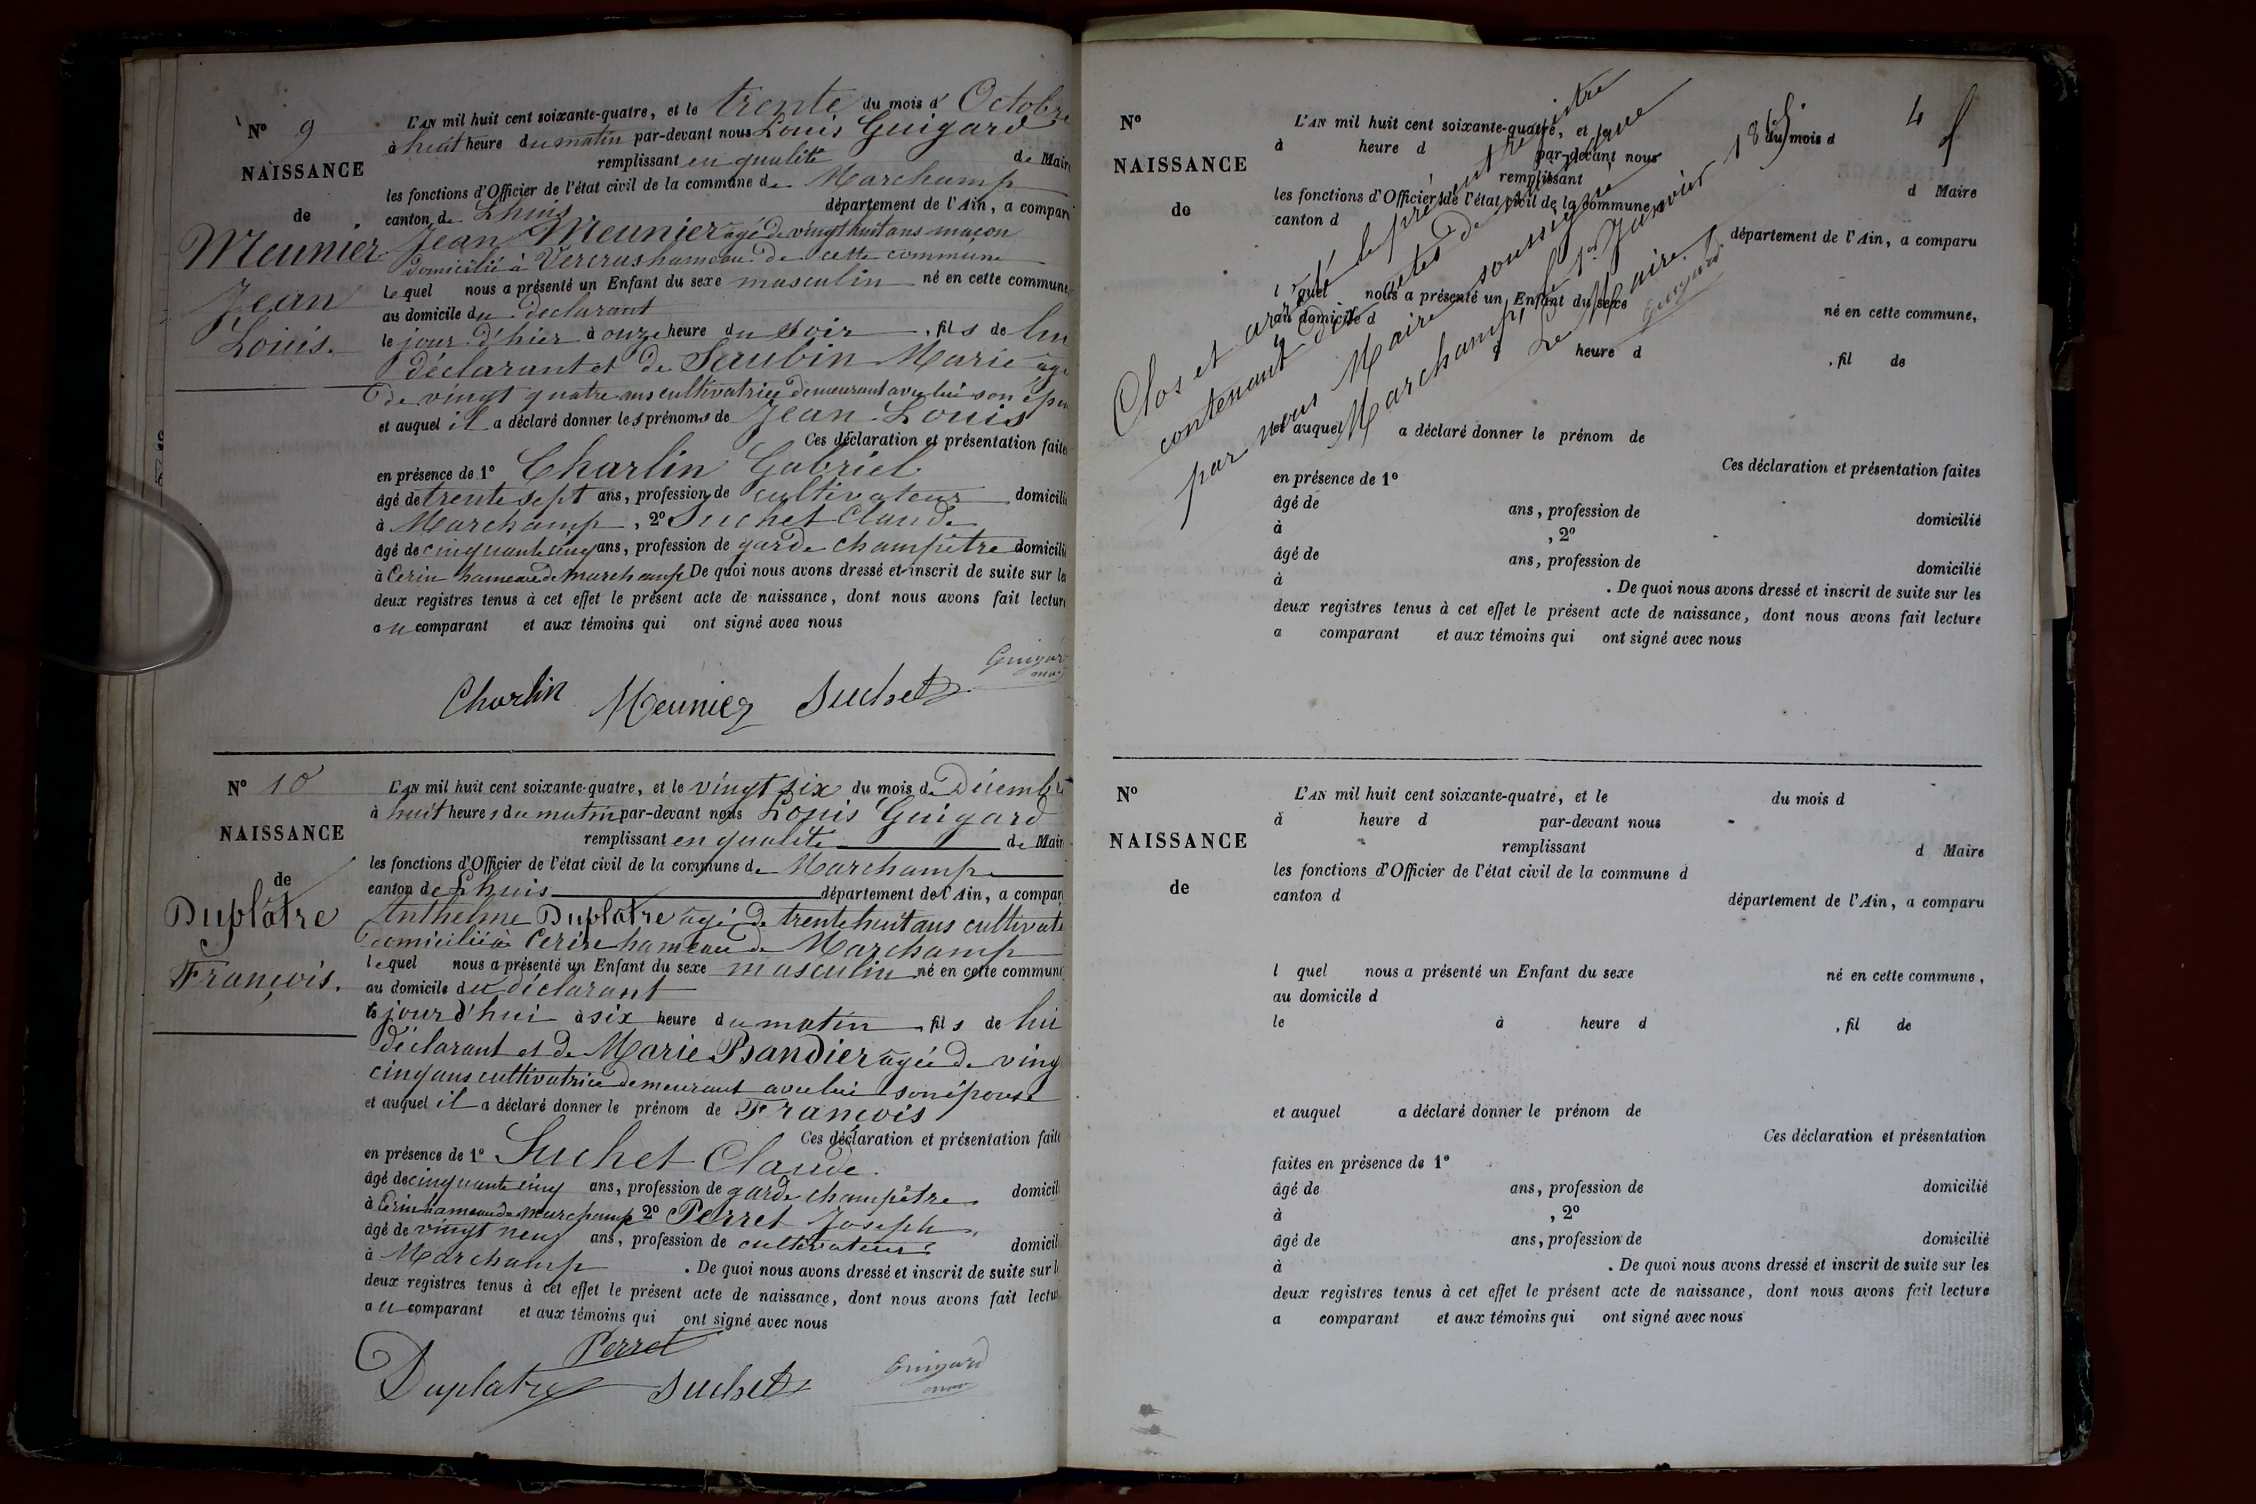 N° 9
NAISSANCE
de
Meunier
Jean
Louis.
L'AN mil huit cent soixante-quatre, et le trente du mois d' Octobre
à huit heure du matin par-devant nous Louis Guigard
remplissant en qualité de Maire
les fonctions d'Officier de l'état civil de la commune de Marchamp
canton de Lhuis département de l'Ain, a comparu
Jean Meunier agé de vingt huit ans maçon
domicilié à Vercras hameau de cette commune
lequel nous a présenté un Enfant du sexe masculin né en cette commune,
au domicile du déclarant
le jour d'hier à onze heure du soir , fils de lui
déclarant et de Saubin Marie agé
de vingt quatre ans cultivatrice demeurant avec lui son épou
et auquel il a déclaré donner les prénoms de Jean Louis
Ces déclaration et présentation faites
en présence de 1° Charlin Gabriel
âgé de trente sept ans, profession de cultivateur domicilié
à Marchamp , 2° Suchet Claude
âgé de cinquante cinq ans, profession de garde champêtre domicilié
à Cerin hameau de Marchamp De quoi nous avons dressé et inscrit de suite sur les
deux registres tenus à cet effet le présent acte de naissance, dont nous avons fait lecture
au comparant et aux témoins qui ont signé avec nous
Guigard
Charlin Meunier Suchet
N° 10
NAISSANCE
de
Duplâtre
François.
L'AN mil huit cent soixante-quatre, et le vingt six du mois de Décembre
à huit heures du matin par-devant nous Louis Guigard
remplissant en qualité de Maire
les fonctions d'Officier de l'état civil de la commune de Marchamp
canton de Lhuis département de l'Ain, a comparu
Anthelme Duplâtre agé de trente huit ans cultivate
domicilié à Cerin hameau de Marchamp
lequel nous a présenté un Enfant du sexe masculin né en cette commune
au domicile du déclarant
le jour d'hui à six heure du matin , fils de lui
déclarant et de Marie Bandier agée de ving
cinq ans cultivatrice demeurant avec lui son épouse
et auquel il a déclaré donner le prénom de François
Ces déclaration et présentation faite
en présence de 1° Suchet Claude
âgé de cinquante cinq ans, profession de garde champêtre domicili
à Cerin hameau de Marchamp 2° Perret Joseph
âgé de vingt neuf ans, profession de cultivateur domicili
à Marchamp . De quoi nous avons dressé et inscrit de suite sur le
deux registres tenus à cet effet le présent acte de naissance, dont nous avons fait lectur
au comparant et aux témoins qui ont signé avec nous
Perret
Duplatre Suchet Guigard
4
Clos et arrêté le présent registre
contenant dix actes de naissance
par nous Maire soussigné
Marchamp, le 1er Janvier 1865
Le Maire
Guigard
N°
NAISSANCE
de
L'AN mil huit cent soixante-quatre, et le du mois d
à heure d par-devant nous
remplissant d Maire
les fonctions d'Officier de l'état civil de la commune d
canton d département de l'Ain, a comparu
l quel nous a présenté un Enfant du sexe né en cette commune,
au domicile d
à heure d , fil de
et auquel a déclaré donner le prénom de
Ces déclaration et présentation faites
en présence de 1°
âgé de ans, profession de domicilié
à , 2°
âgé de ans, profession de domicilié
à . De quoi nous avons dressé et inscrit de suite sur les
deux registres tenus à cet effet le présent acte de naissance, dont nous avons fait lecture
a comparant et aux témoins qui ont signé avec nous
N°
NAISSANCE
de
L'AN mil huit cent soixante-quatre, et le du mois d
à heure d par-devant nous
remplissant d Maire
les fonctions d'Officier de l'état civil de la commune d
canton d département de l'Ain, a comparu
l quel nous a présenté un Enfant du sexe né en cette commune,
au domicile d
le à heure d , fil de
et auquel a déclaré donner le prénom de
Ces déclaration et présentation
faites en présence de 1°
âgé de ans, profession de domicilié
à , 2°
âgé de ans, profession de domicilié
à . De quoi nous avons dressé et inscrit de suite sur les
deux registres tenus à cet effet le présent acte de naissance, dont nous avons fait lecture
a comparant et aux témoins qui ont signé avec nous